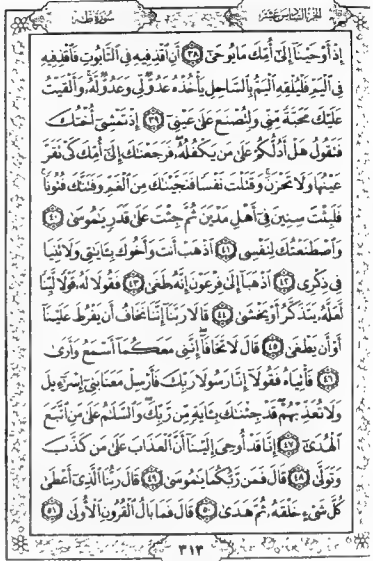 الجزء السادس عشر سورة طه
إِذْ أَوْحَيْنَآ إِلَىٰٓ أُمِّكَ مَا يُوحَىٰٓ ٣٨ أَنِ ٱقْذِفِيهِ فِى ٱلتَّابُوتِ فَٱقْذِفِيهِ
فِى ٱلْيَمِّ فَلْيُلْقِهِ ٱلْيَمُّ بِٱلسَّاحِلِ يَأْخُذْهُ عَدُوٌّ لِّى وَعَدُوٌّ لَّهُۥ وَأَلْقَيْتُ
عَلَيْكَ مَحَبَّةً مِّنِّى وَلِتُصْنَعَ عَلَىٰ عَيْنِىٓ ٣٩ إِذْ تَمْشِىٓ أُخْتُكَ
فَتَقُولُ هَلْ أَدُلُّكُمْ عَلَىٰ مَن يَكْفُلُهُۥ فَرَجَعْنَٰكَ إِلَىٰٓ أُمِّكَ كَىْ تَقَرَّ
عَيْنُهَا وَلَا تَحْزَنَ وَقَتَلْتَ نَفْسًا فَنَجَّيْنَٰكَ مِنَ ٱلْغَمِّ وَفَتَنَّٰكَ فُتُونًا
فَلَبِثْتَ سِنِينَ فِىٓ أَهْلِ مَدْيَنَ ثُمَّ جِئْتَ عَلَىٰ قَدَرٍ يَٰمُوسَىٰ ٤٠
وَٱصْطَنَعْتُكَ لِنَفْسِى ٤١ ٱذْهَبْ أَنتَ وَأَخُوكَ بِـَٔايَٰتِى وَلَا تَنِيَا
فِى ذِكْرِى ٤٢ ٱذْهَبَآ إِلَىٰ فِرْعَوْنَ إِنَّهُۥ طَغَىٰ ٤٣ فَقُولَا لَهُۥ قَوْلًا لَّيِّنًا
لَّعَلَّهُۥ يَتَذَكَّرُ أَوْ يَخْشَىٰ ٤٤ قَالَا رَبَّنَآ إِنَّنَا نَخَافُ أَن يَفْرُطَ عَلَيْنَآ
أَوْ أَن يَطْغَىٰ ٤٥ قَالَ لَا تَخَافَآ إِنَّنِى مَعَكُمَآ أَسْمَعُ وَأَرَىٰ
٤٦ فَأْتِيَاهُ فَقُولَآ إِنَّا رَسُولَا رَبِّكَ فَأَرْسِلْ مَعَنَا بَنِىٓ إِسْرَٰٓءِيلَ
وَلَا تُعَذِّبْهُمْ قَدْ جِئْنَٰكَ بِـَٔايَةٍ مِّن رَّبِّكَ وَٱلسَّلَٰمُ عَلَىٰ مَنِ ٱتَّبَعَ
ٱلْهُدَىٰٓ ٤٧ إِنَّا قَدْ أُوحِىَ إِلَيْنَآ أَنَّ ٱلْعَذَابَ عَلَىٰ مَن كَذَّبَ
وَتَوَلَّىٰ ٤٨ قَالَ فَمَن رَّبُّكُمَا يَٰمُوسَىٰ ٤٩ قَالَ رَبُّنَا ٱلَّذِىٓ أَعْطَىٰ
كُلَّ شَىْءٍ خَلْقَهُۥ ثُمَّ هَدَىٰ ٥٠ قَالَ فَمَا بَالُ ٱلْقُرُونِ ٱلْأُولَىٰ ٥١
٣١٣